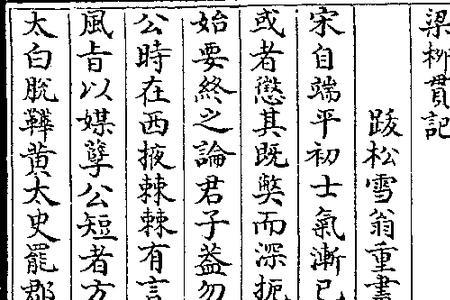 梁柳貫記
跋松雪翁重書
宋自端平初士氣漸已
或者懲其既獘而深扼
始要終之論君子葢勿
公時在西掖棘棘有言
風旨以媒孽公短者方
太白脫鞾黄太史罷郡